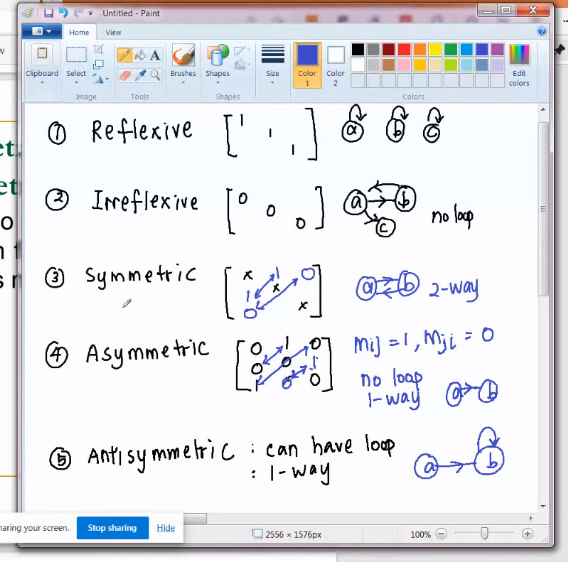 Untitled - Paint
Home
View
Clipboard
Select
Image
Tools
Brushes
Shapes
Shapes
Size
Color
1
Color
2
Colors
Edit
colors
① Reflexive [ 1 1 1 ] a b c
② Irreflexive [ 0 0 0 ] a b c no loop
③ Symmetric [ x 1 0 1 x 0 x ] a b 2-way
④ Asymmetric [ 0 1 0 0 0 1 1 0 0 ] Mij = 1, Mji = 0
no loop
1-way a b
⑤ Antisymmetric : can have loop
: 1-way a b
haring your screen.
Stop sharing
Hide
2556 × 1576px
100%